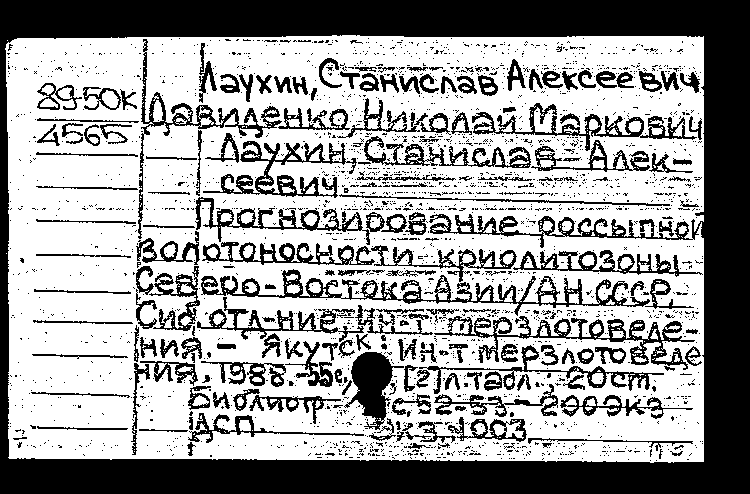 Лаухин, Станислав Алексеевич.
89-50К
Давиденко, Николай Маркович
4565
Лаухин, Станислав Алек-
сеевич.
Прогнозирование россыпной
золотоносности криолитозоны
Северо-Востока Азии/АН СССР,
Сиб. отд-ние, Ин-т мерзлотоведе-
ния. - Якутск: Ин-т мерзлотоведе
ния, 1988. - 55 с., [2] л. табл.; 20 ст.
Библиогр. с. 52-53. - 200 экз
ДСП. Экз. 1003